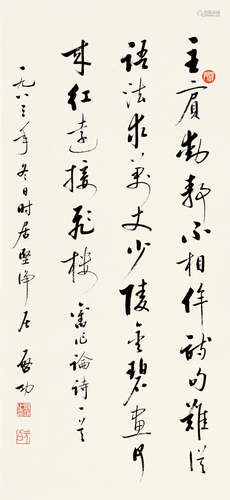 主賓動靜不相侔詩句難從
語法求萬丈少陵金碧畫
來紅遠接飛樓 舊作論詩一首
一九八三年冬日時居堅净居 啓功